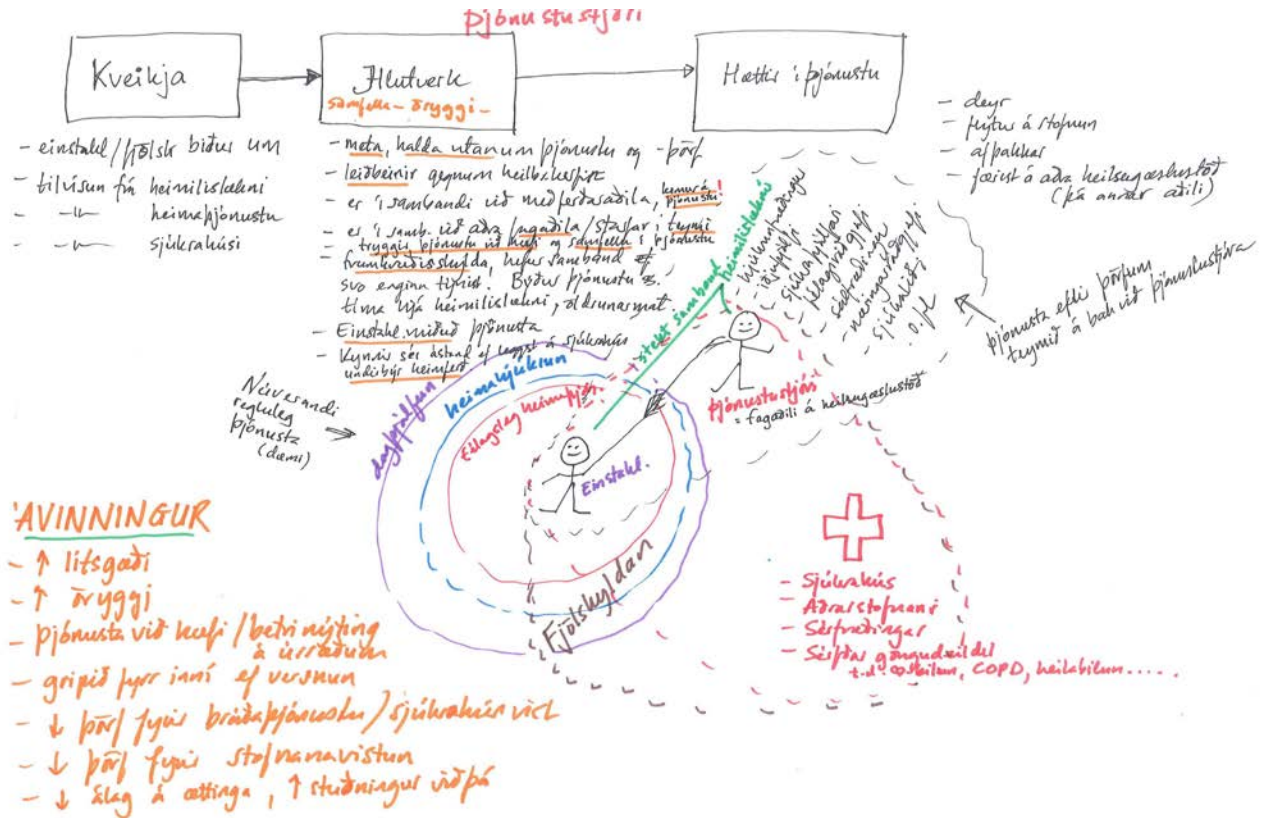 Þjónustustjóri
Kveikja
- einstakl/fjölsk biður um
- tilvísun frá heimilislækni
- -"- heimaþjónustu
- -"- sjúkrahúsi
Hlutverk
samfella - öryggi -
- meta, halda utanum þjónustu og -þörf
- leiðbeinir gegnum heilb.kerfið
- er í sambandi við meðferðaraðila, kemur á þjónustu!
- er í samb. við aðra fagaðila/starfar í teymi
- tryggir þjónustu við hæfi og samfellu í þjónustu
- frumkvæðisskylda, hefur samband ef
svo enginn týnist. Býður þjónustu
tíma hjá heimilislækni, öldrunarmat.
- Einstakl.miðuð þjónusta
- Kynnir sér ástand ef leggst á sjúkrahús
undirbýr heimferð
Hættir í þjónustu
- deyr
- flytur á stofnun
- afþakkar
- færist á aðra heilsugæslustöð
(þá annar aðili)
sterkt samband
heimilislæknir
- hjúkrunarfræðingur
- iðjuþjálfi
- sjúkraþjálfari
- félagsráðgjafi
- sálfræðingur
- næringarráðgjafi
- sjúkraliði
o.fl
þjónusta eftir þörfum
teymið á bak við þjónustustjóra
Núverandi
regluleg
þjónusta
(dæmi)
dagþjálfun
heimahjúkrun
félagsleg heimaþjón.
Einstakl.
Fjölskyldan
þjónustustjóri
= fagaðili á heilsugæslustöð
- Sjúkrahús
- Aðrar stofnanir
- Sérfræðingar
- Sérhæfðar göngudeildir
t.d. hjartabilun, COPD, heilabilun.....
ÁVINNINGUR
- ↑ lífsgæði
- ↑ öryggi
- þjónusta við hæfi/betri nýting
á úrræðum
- gripið fyrr inní ef versnun
- ↓ þörf fyrir bráðaþjónustu/sjúkrahúsvist
- ↓ þörf fyrir stofnanavistun
- ↓ álag á ættingja, ↑ stuðningur við þá